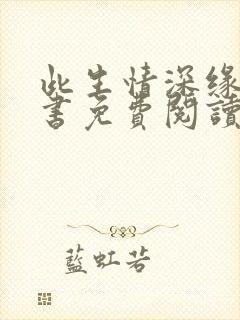 此生情深緣
書免費閱讀
藍虹若